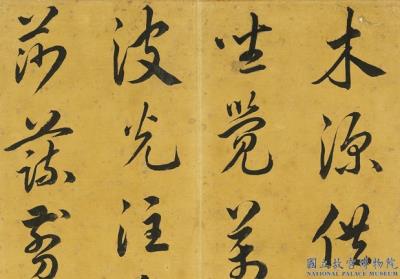 木源供
坐覺萬
波光注
莎
國立故宮博物院
NATIONAL PALACE MUSEUM